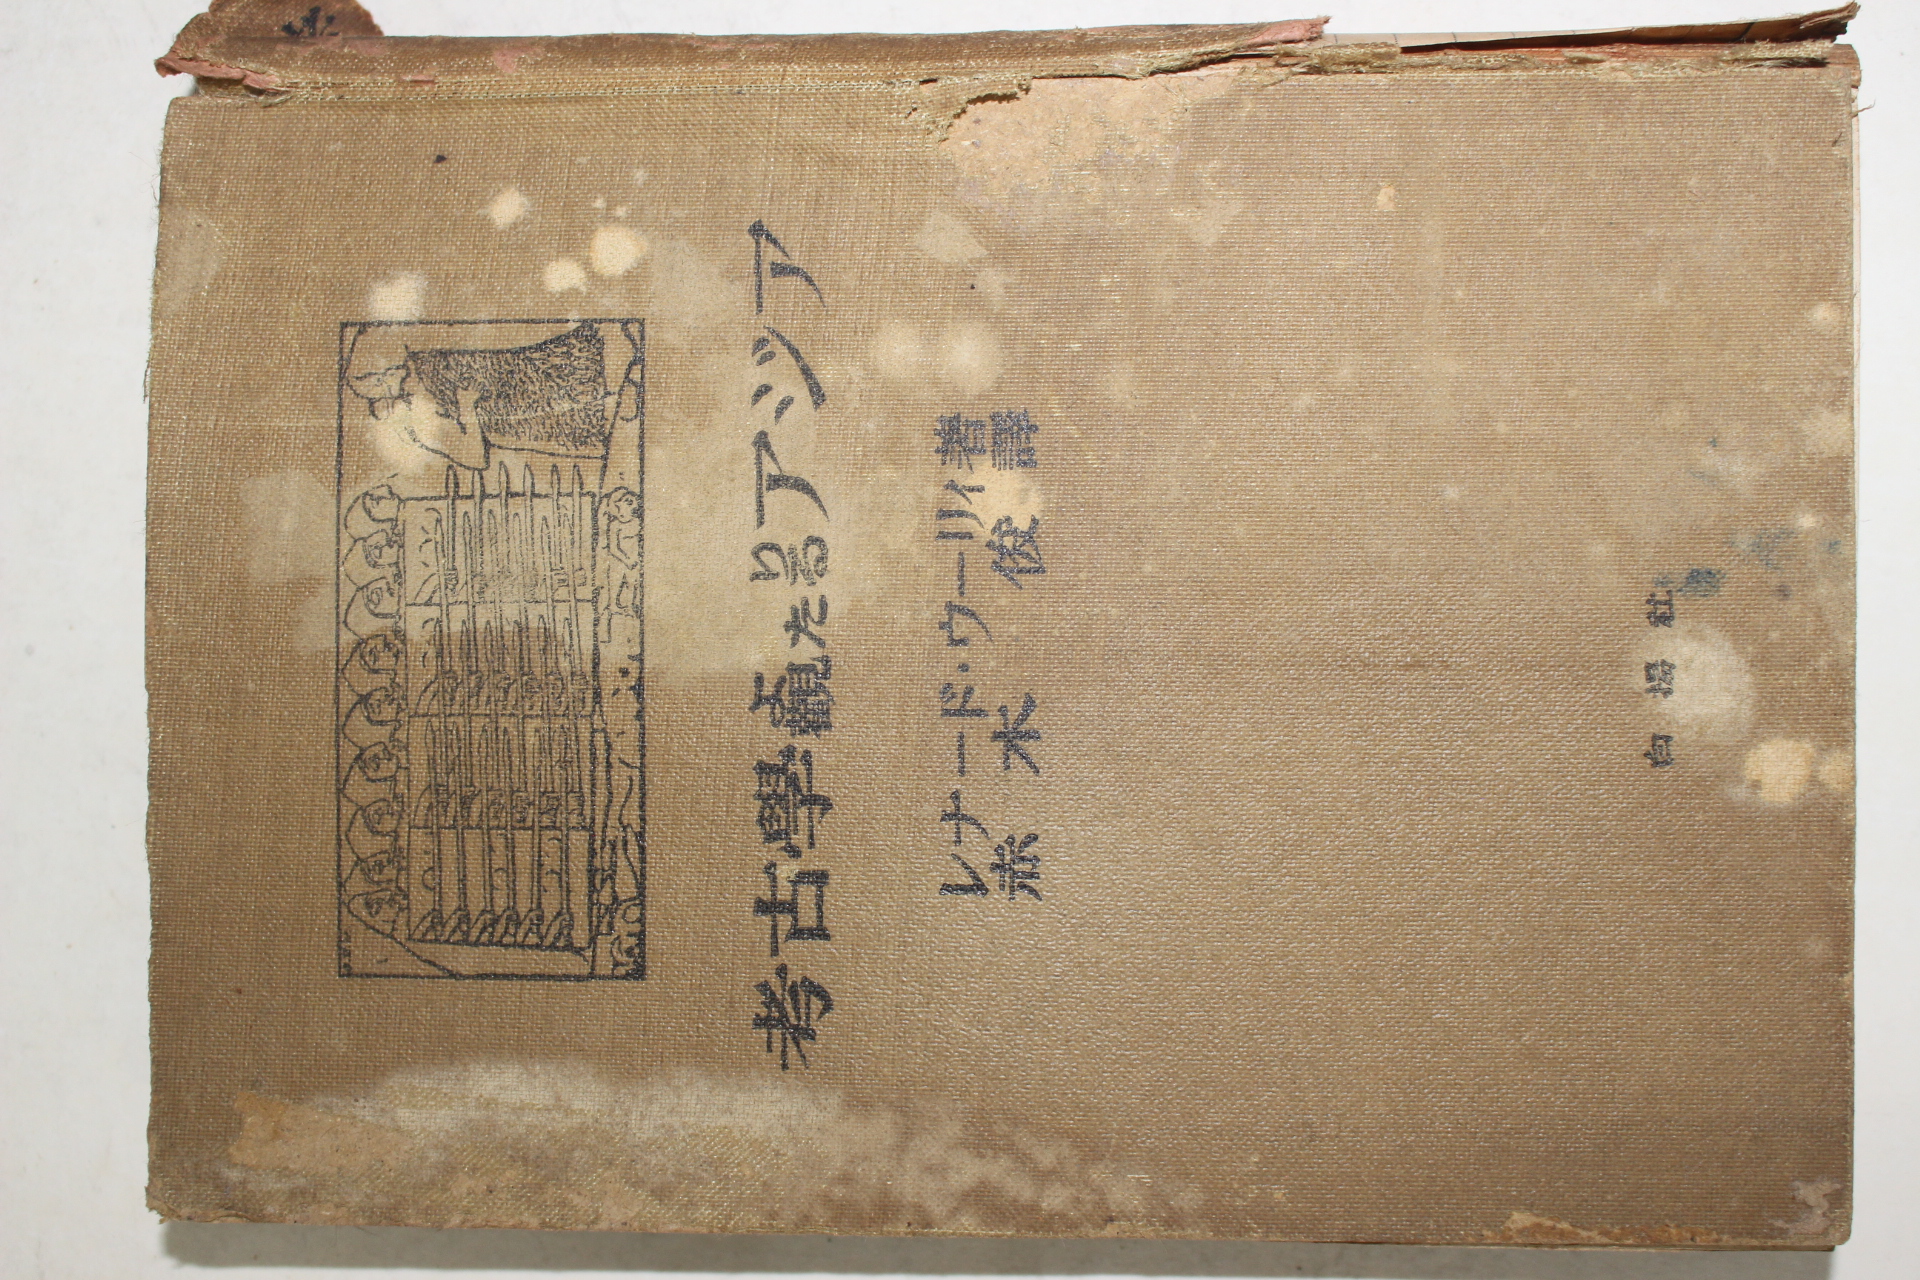 考古學より觀たるアジア
レナード・ウーリィ著
赤木俊譯
白揚社